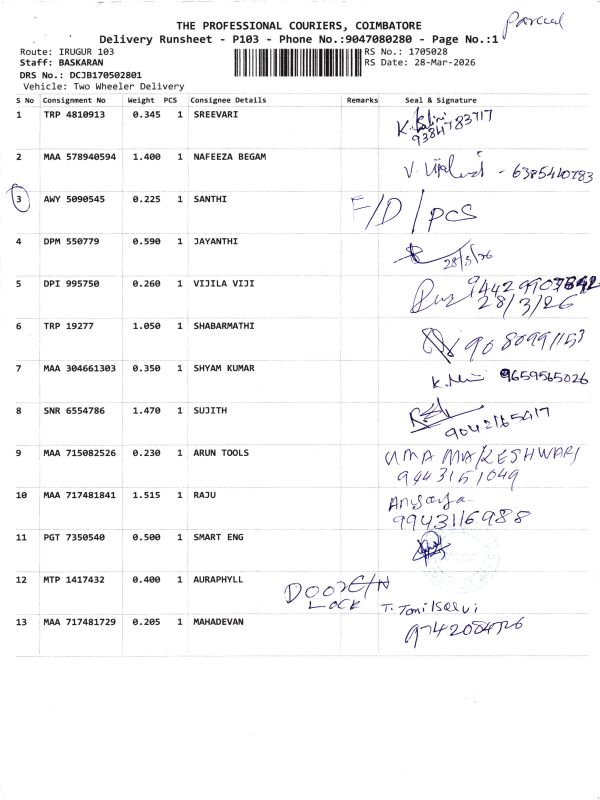 Parcel
THE PROFESSIONAL COURIERS, COIMBATORE
Delivery Runsheet - P103 - Phone No.:9047080280 - Page No.:1
Route: IRUGUR 103
RS No.: 1705028
Staff: BASKARAN
RS Date: 28-Mar-2026
DRS No.: DCJB170502801
Vehicle: Two Wheeler Delivery
S No Consignment No Weight PCS Consignee Details Remarks Seal & Signature
1 TRP 4810913 0.345 1 SREEVARI
9384783717
2 MAA 578940594 1.400 1 NAFEEZA BEGAM
3 AWY 5090545 0.225 1 SANTHI F/D / PCS
4 DPM 550779 0.590 1 JAYANTHI
28/3/26
5 DPI 995750 0.260 1 VIJILA VIJI
28/3/26
6 TRP 19277 1.050 1 SHABARMATHI 9080991153
7 MAA 304661303 0.350 1 SHYAM KUMAR 9659565026
8 SNR 6554786 1.470 1 SUJITH
9042165417
9 MAA 715082526 0.230 1 ARUN TOOLS UMA MAKESHWARI
9443151049
10 MAA 717481841 1.515 1 RAJU
9943116988
11 PGT 7350540 0.500 1 SMART ENG
12 MTP 1417432 0.400 1 AURAPHYLL DOOR
LOCK T. Tamilselvi
13 MAA 717481729 0.205 1 MAHADEVAN